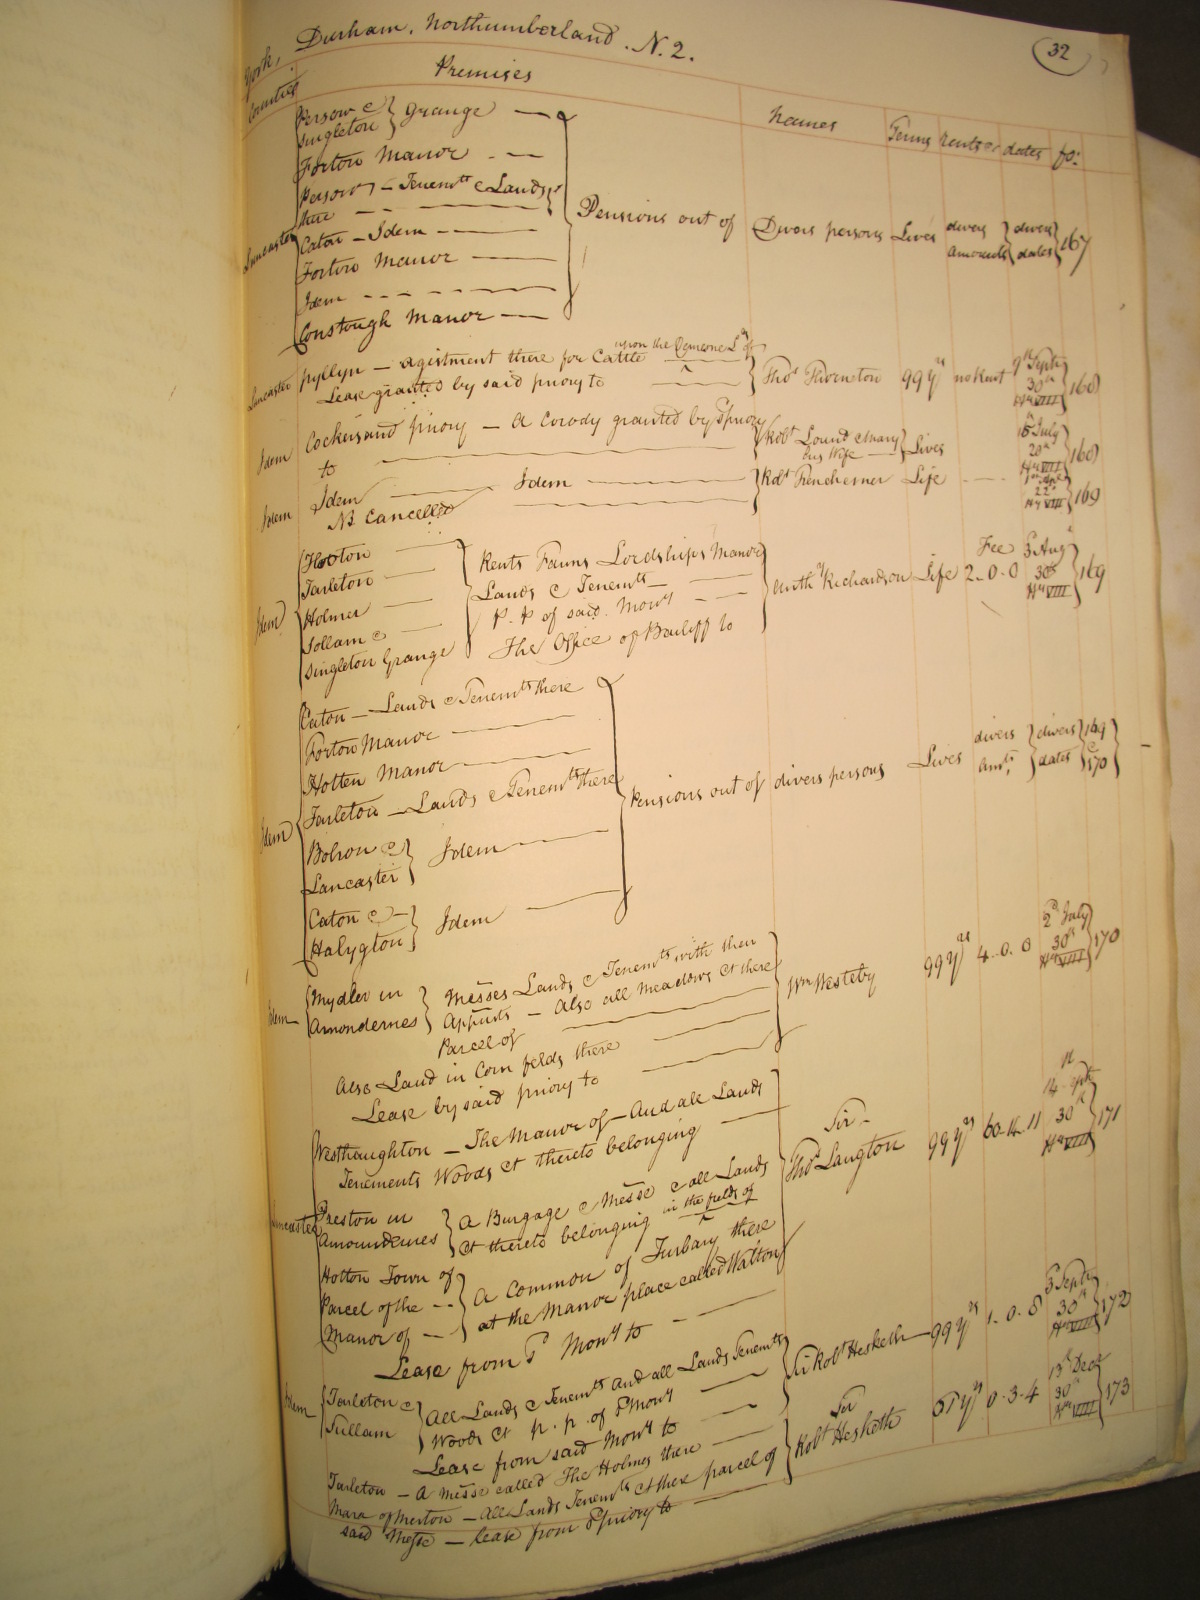 York, Durham, Northumberland. N. 2. 32
Counties Premises Names Terms rents or dates fo:
Persow & Singleton } Grange
Forton Manor
Persow - Tenemts & Lands there
Lancaster Caton - Idem Pensions out of Divers persons Lives divers amounts } divers dates } 167
Forton Manor
Idem
Manor
Lancaster pyllyn - agistment there for Cattle upon the Demesne Ls of
Lease granted by said priory to Thos Thorneton 99 yrs no Rent Septr 30th Hy VIII 168
Idem Cockersand priory - A Corody granted by sd priory
to Robt Lound & Mary his Wife Lives 15 July 20th Hy VIII 168
Idem Idem Idem Robt Life 22d Hy VIII 169
NB Cancelled
Idem Hooton
Tarleton
Holmer
Sollam &
Singleton Grange
Rents Farms Lordships Manors
Lands & Tenemts
p. p of said Mony
The Office of Bailiff to
Anthy Richardson Life Fee 2.0.0 3 Aug 30th Hy VIII 169
Idem Caton - Lands & Tenemts there
Forton Manor
Hotten Manor
Tarleton - Lands & Tenemts there
Bolron & Lancaster } Idem
Caton & Halygton } Idem
Pensions out of divers persons Lives divers Amts } divers dates } 169 & 170
Idem Mydler in Amondernes } Messes Lands & Tenemts with their
Appurts - Also all meadows &c there
Parcel of
Also Land in Corn fields there
Lease by said priory to
Wm Westeby 99 yrs 4.0.0 2d July 30th Hy VIII 170
Westhaughton - The Manor of - And all Lands
Tenements Woods &c thereto belonging
Lancaster Preston in Amoundernes } A Burgage & Messe & all Lands
&c thereto belonging in the fields of
Hotton Town of
Parcel of the
Manor of
A Common of Turbary there
at the Manor place called Walton
Lease from sd Mony to
Sir Thos Langton 99 yrs 60.14.11 14 Septr 30th Hy VIII 171
Idem Tarleton & Sullam } All Lands & Tenemts and all Lands Tenemts
Woods &c p. p. of sd Mony
Lease from said Mony to
Sir Robt Hesketh 99 yrs 1.0.8 3 Septr 30th Hy VIII 172
Tarleton - A Messe called The Holmes there
Mara of Merton - All Lands Tenemts &c there parcel of
said Messe - lease from sd priory to
Sir Robt Hesketh yrs 0.3.4 13th Decr 30th Hy VIII 173